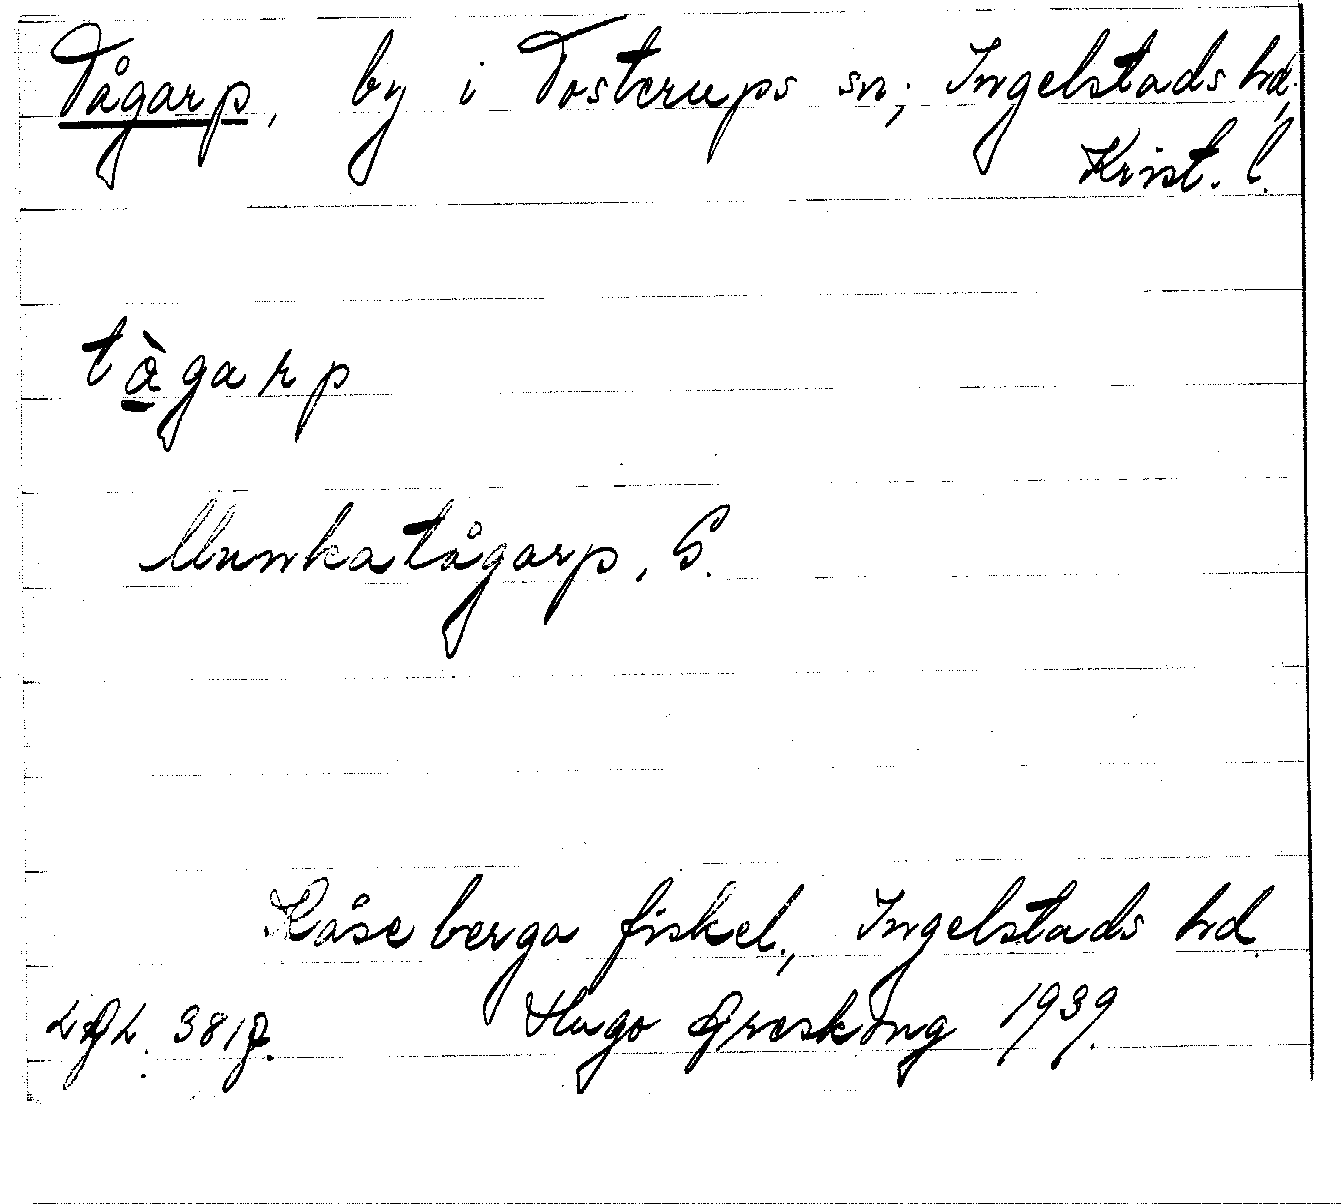 Tågarp, by i Tosterups sn; Ingelstads hd,
Krist. l.
tàgarp
Munkatågarp, S.
Kåseberga fiskel., Ingelstads hd.
Hugo Areskoug 1939.